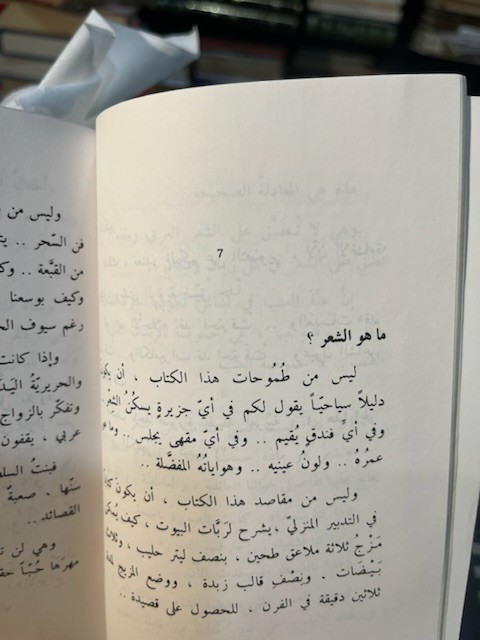 7
ما هو الشعر ؟
ليس من طُمُوحات هذا الكتاب ، أن يكون
دليلاً سياحيّاً يقول لكم في أيّ جزيرةٍ يسكُنُ الشعْرُ
وفي أيّ فندقٍ يُقيم .. وفي أيّ مقهى يجلس .. وما
عمرُهُ .. ولونُ عينيه .. وهواياتُهُ المفضَّلة ..
وليس من مقاصد هذا الكتاب ، أن يكونَ
في التدبير المنزليّ ، يشرح لرَبَّات البيوت ، كيف
مَزْجُ ثلاثة ملاعق طحين ، بنصف ليتر حليب ، وثلاث
بَيْضَات . ونِصْفِ قالب زبدة ، ووضع المزيج
ثلاثين دقيقة في الفرن ، للحصول على قصيدة ..
وليس من
فن السّحر ..
من القبَّعة ..
وكيف بوسعنا
رغم سيوف
وإذا كانت
والحريريَّة
وتفكّر بالزواج
عربي ، يقفون
فبنتُ
سنّها . صعبةٌ
القصائد ..
وهي لن
مهرَها حُبّاً